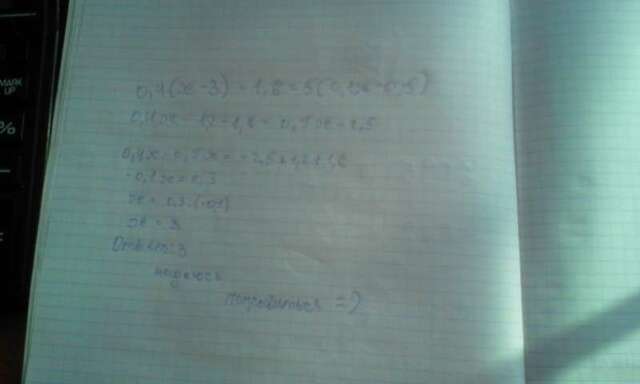 0,4(x-3) - 1,6 = 5(0,1x-0,5)
0,4x - 1,2 - 1,6 = 0,5x - 2,5
0,4x - 0,5x = -2,5+1,2+1,6
-0,1x = 0,3
x = 0,3:(-0,1)
x = 3
Ответ: 3
надеюсь
понравиться =)
MARK UP
%